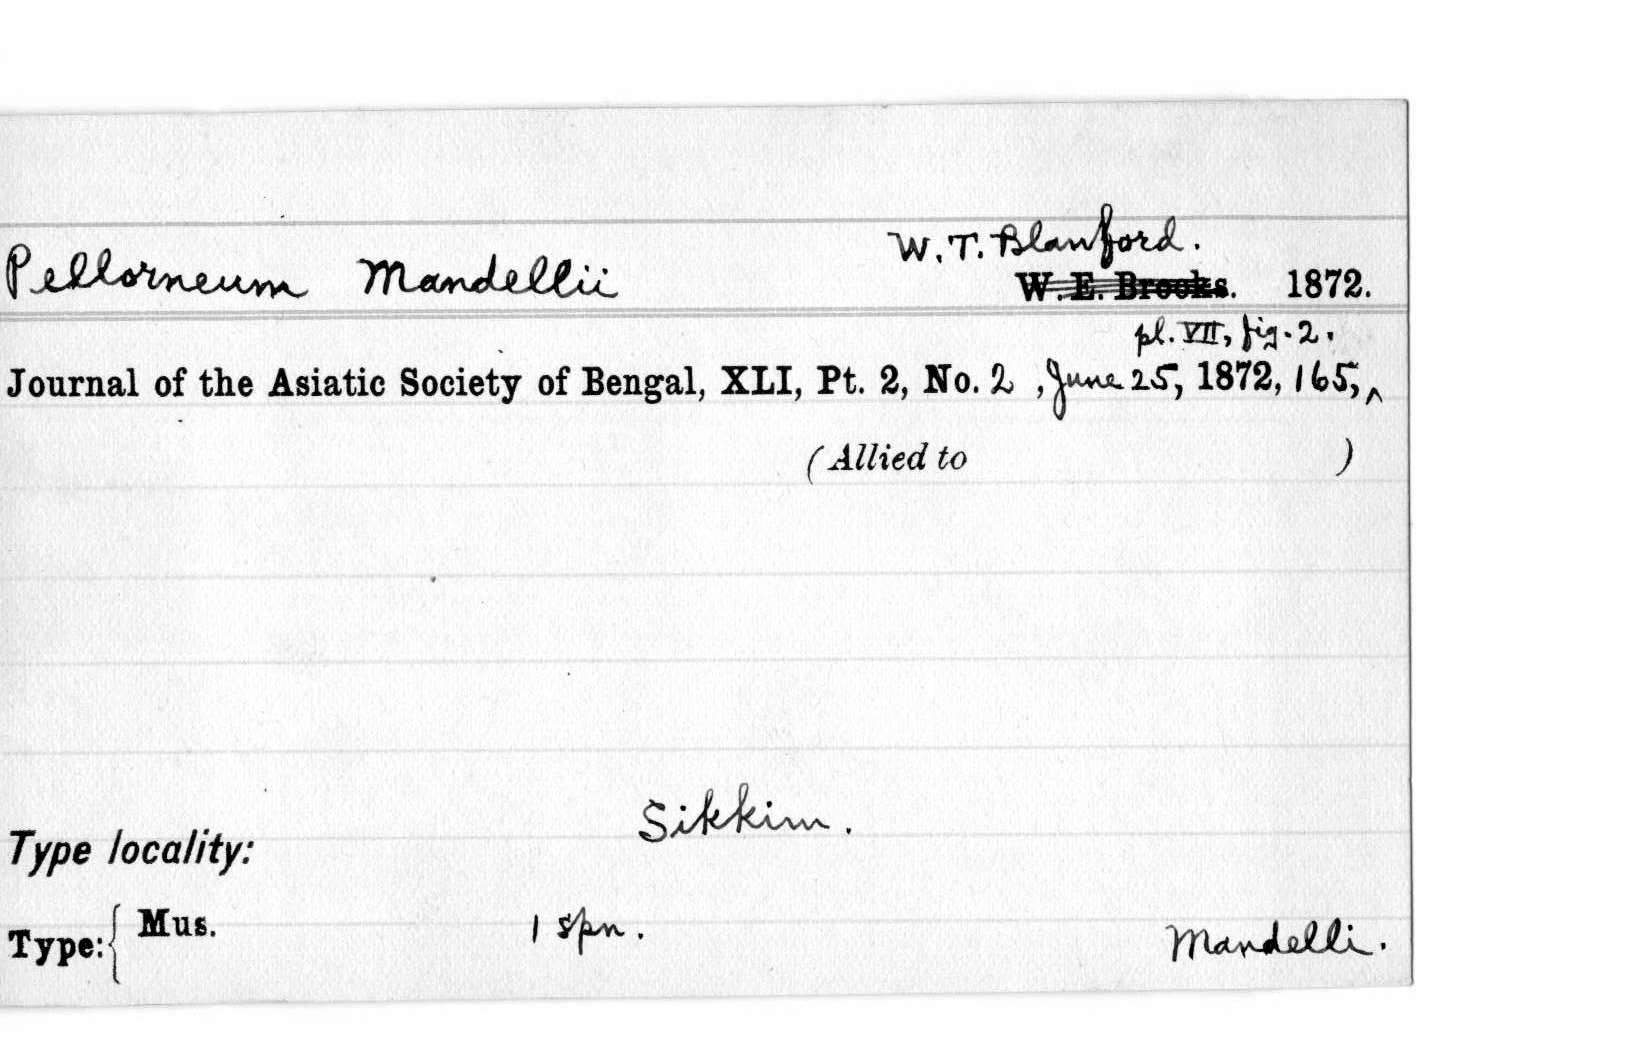 W. T. Blanford.
Pellorneum Mandellii W. E. Brooks. 1872.
pl. VII, fig. 2.
Journal of the Asiatic Society of Bengal, XLI, Pt. 2, No. 2, June 25, 1872, 165, ^
(Allied to )
Sikkim.
Type locality:
Type: { Mus. 1 spn. Mandelli.